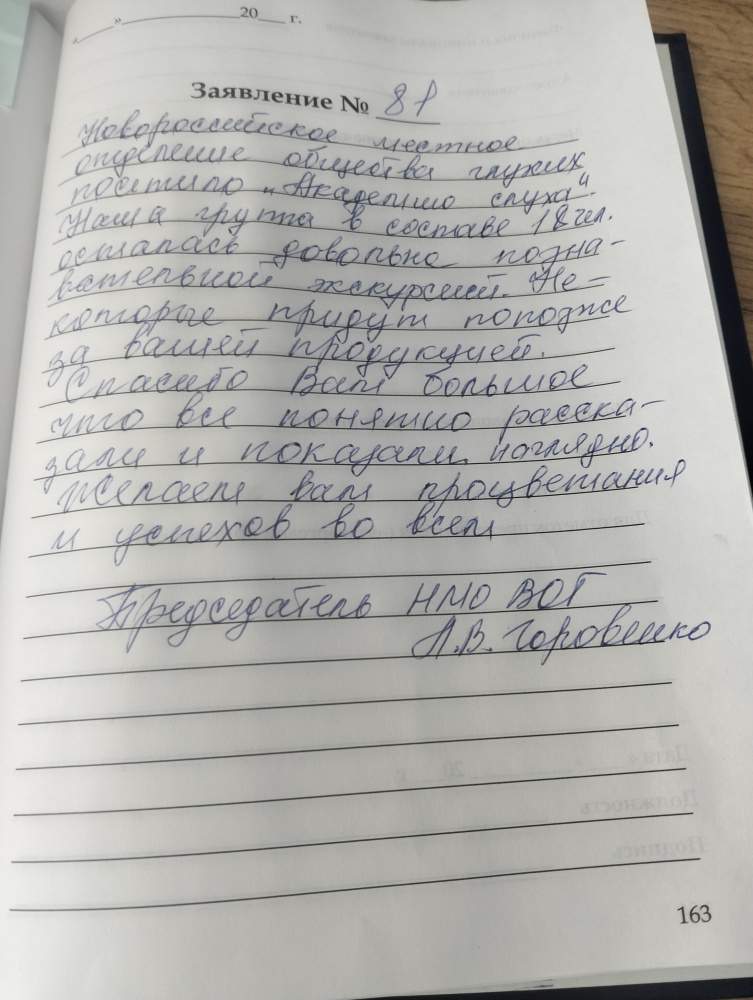 «____»____________20___ г.
Заявление № 81
Новороссийское местное
отделение общества глухих
посетило „Академию слуха“.
Наша группа в составе 18 чел.
осталась довольна позна-
вательной экскурсией. Не-
которые придут попозже
за вашей продукцией.
Спасибо Вам большое
что все понятно расска-
зали и показали наглядно.
Желаем вам процветания
и успехов во всем
Председатель НМО ВОГ
Л.В. Горовенко
Дата «____»____________20___ г.
Должность
Подпись
163